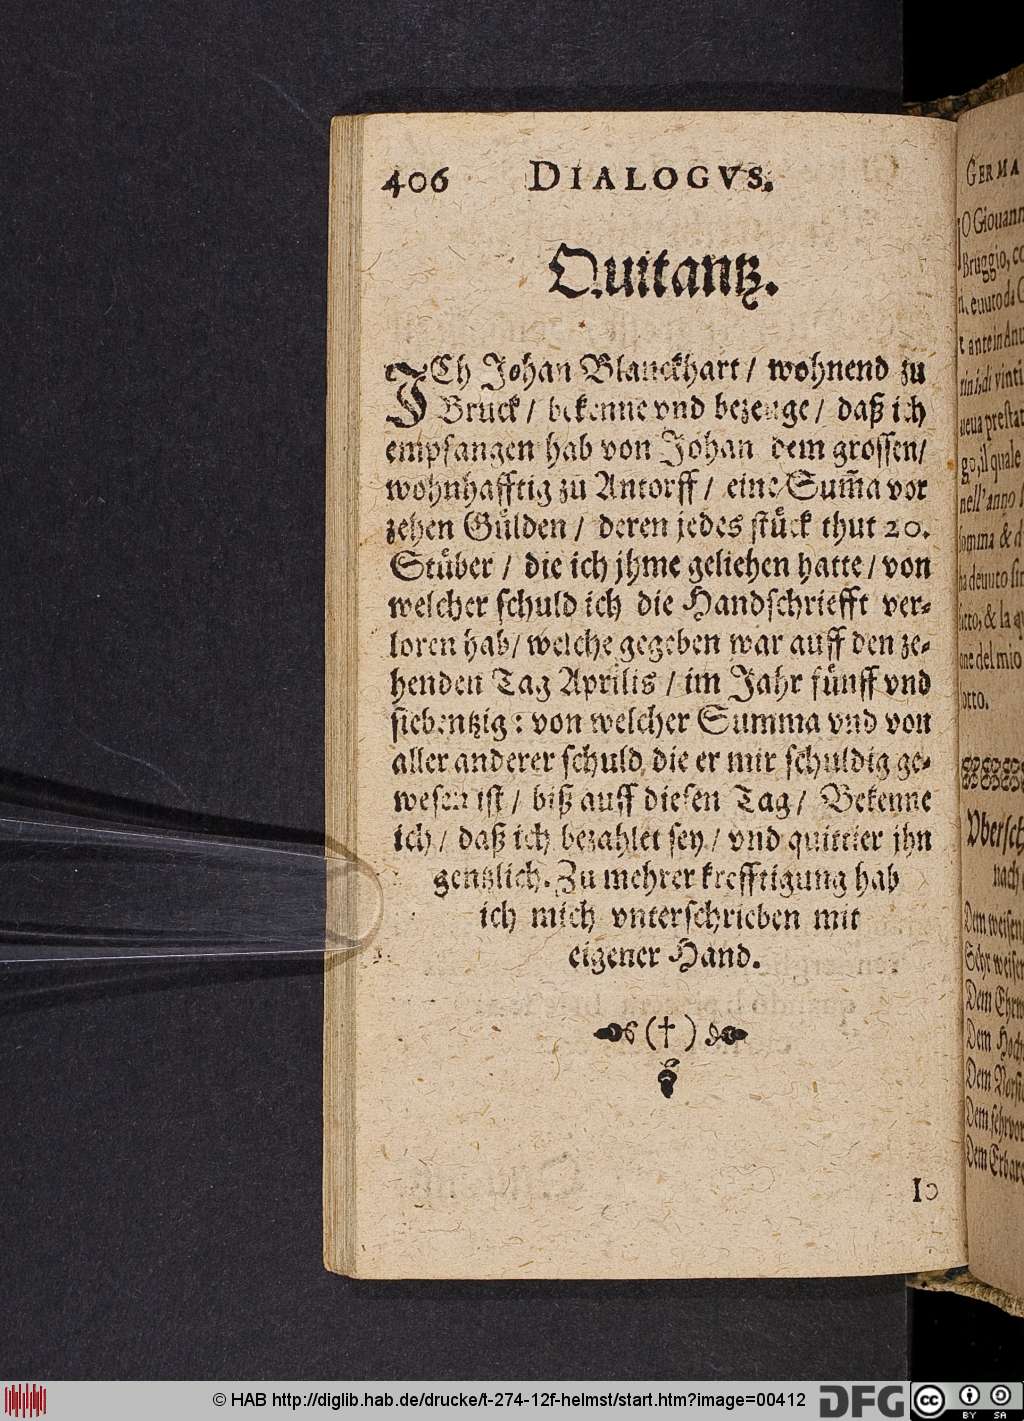 406 DIALOGVS.
Quitantz.
ICh Johan Blanckhart / wohnend zu
Bruck / bekenne vnd bezeuge / daß ich
empfangen hab von Johan dem grossen/
wohnhafftig zu Antorff / eine Sum̃a vor
zehen Guͤlden / deren jedes stuͤck thut 20.
Stuͤber / die ich jhme geliehen hatte / von
welcher schuld ich die Handschriefft ver⸗
loren hab/ welche gegeben war auff den ze⸗
henden Tag Aprilis / im Jahr fuͤnff vnd
siebentzig : von welcher Summa vnd von
aller anderer schuld, die er mir schuldig ge⸗
wesen ist / biß auff diesen Tag / Bekenne
ich / daß ich bezahlet sey / vnd quittier jhn
gentzlich. Zu mehrer krefftigung hab
ich mich vnterschrieben mit
eigener Hand.
(†)
Io
GERMA
IO Giouann
Bruggio, co
t ante in Ant
vinti
il quale
nell'anno
somma & d
& la qu
one del mio
Vbersch
nach
Dem weisen
Sehr weisen
Dem Ehrw
Dem Hoch
Dem
Dem sehr vor
Dem Erbare
© HAB http://diglib.hab.de/drucke/t-274-12f-helmst/start.htm?image=00412
DFG
cc BY SA